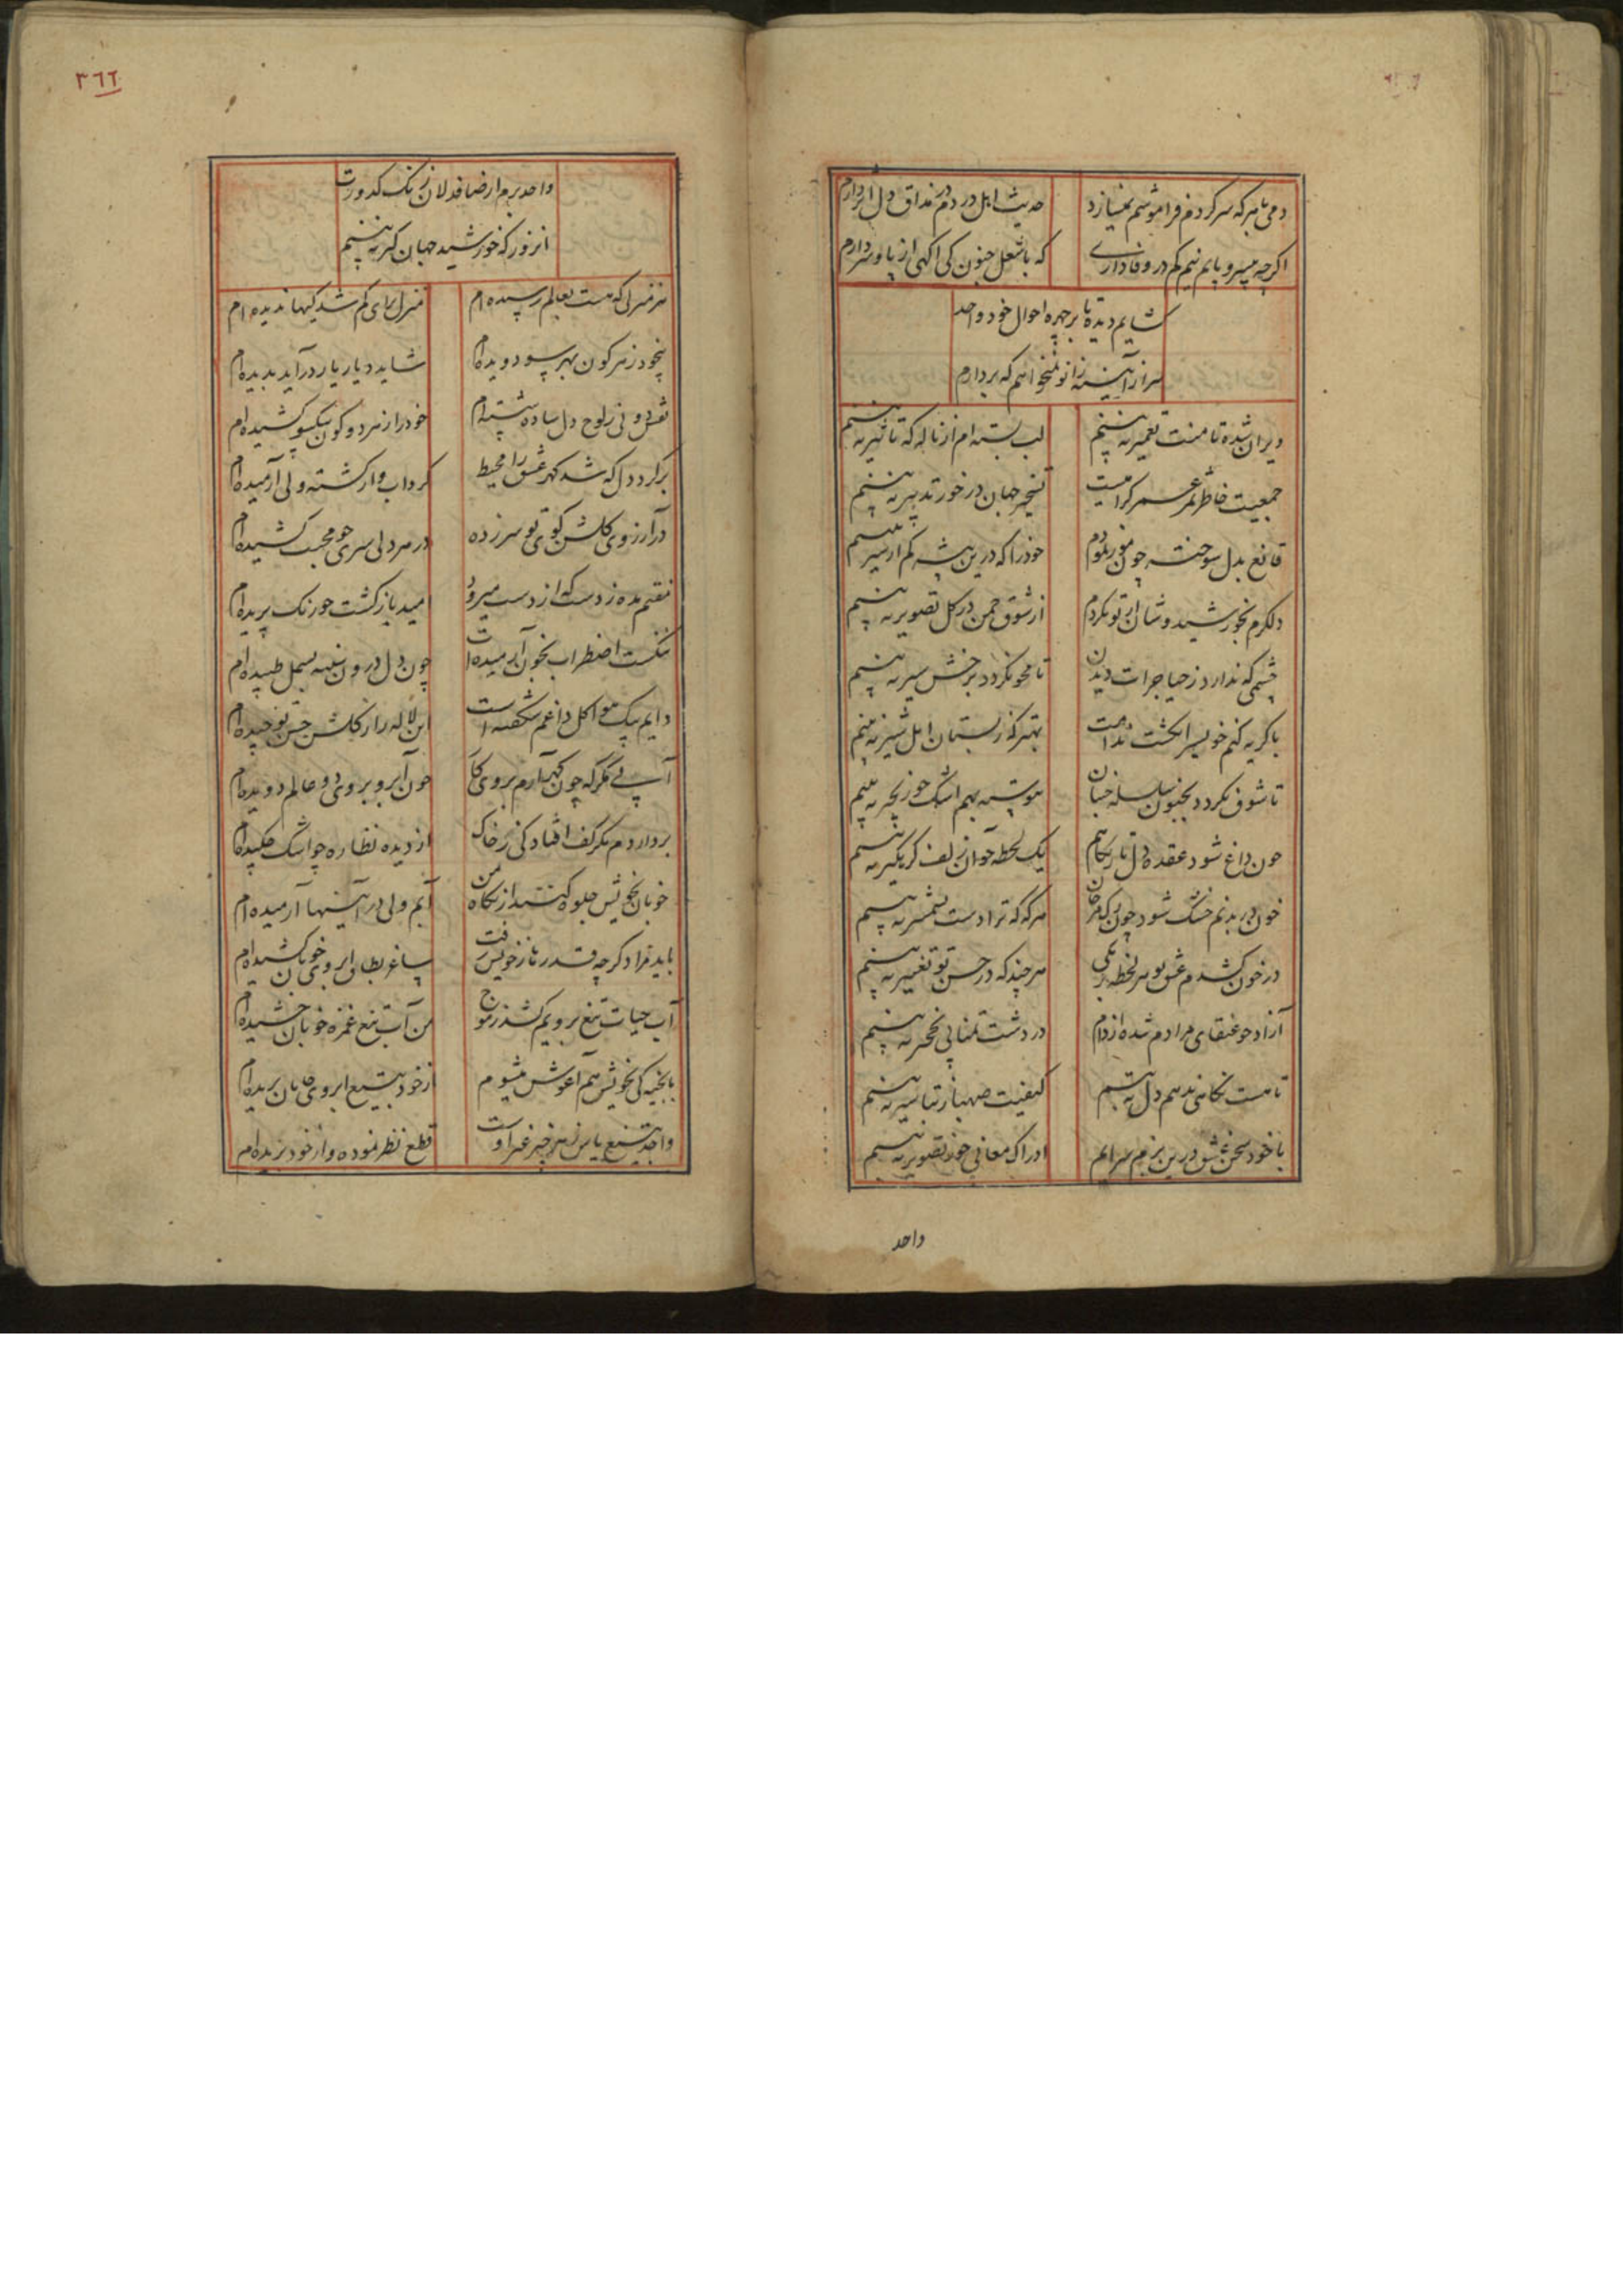 دمی با هر که سر کردم فراموشم نمیسازد
حدیث اهل دردم در مذاق دل اثر دارم
اکرچه بیسر و پایم نیم کم در وفاداری
که با شغل جنون کی اکهی از پا و سر دارم
کشایم دیده تا بر چهره احوال خود واحد
سر از آیینه زانو نمیخواهم که بردارم
ویران شده تا منت تعمیر نه بینم
لب بسته ام از ناله که تاثیر نه بینم
جمعیت خاطر ثمر عمر کرامیست
تسخیر جهان در خور تدبیر نه بینم
قانع بدل سوخته چون
خود را که درین بیشه کم از شیر نه بینم
دلکرم بخورشید وشان از تو نکردم
از شوق چمن در کل تصویر نه بینم
چشمی که ندارد ز حیا جرات دیدن
تا محو نکردد برخش سیر نه بینم
با کریه کنم خو بسر انکشت ندامت
بهتر که ز پستان امل شیر نه بینم
تا شوق نکردد بجنون سلسله جنبان
پیوسته بهم اشک چو زنجیر نه بینم
چون داغ شود عقده دل بار نکاهم
یک لحظه جو آن زلف کره کیر نه بینم
خون در بدنم خشک شود چون رک مرجان
هرکه که ترا دست بشمشیر نه بینم
در خون کشدم عشق تو هر لحظه برنکی
هر چند که در حسن تو تغییر نه بینم
آزاد چو عنقای مرادم شده از دام
در دشت تمنا پی نخجیر نه بینم
تا مست نکاهی ندهم دل به تبسم
کیفیت صهبا ز تباشیر نه بینم
با خود سخن عشق درین بزم سرایم
ادراک معانی چو ز تصویر نه بینم
واحد
٣٦٦
واحد برم ار صافدلان زنک کدورت
انروز که خورشید جهان کیر نه بینم
هر منزلی که هست بعالم رسیده ام
منزل برای کم شد کیها ندیده ام
بیخود ز هر کون بهر سو دویده ام
شاید دیار یار درآید بدیده ام
نقش دوئی ز لوح دل ساده شسته ام
خود را ز هر دو کون بیکسو کشیده ام
برکرد دل که شد کهر عشق را محیط
کرداب وار کشته ولی آرمیده ام
در آرزوی کلشن کوی تو سر زده
در هر دلی سری چو محبت کشیده ام
مفتم مده ز دست که از دست میرود
صید باز کشت چو رنک پریده ام
ننکست اضطراب بخون آرمیده ام
چون دل درون سینه بسمل طپیده ام
دایم بیک هوا کل داغم شکفته است
این لاله را ز کلشن حسن تو چیده ام
آب
چون آبرو بروی دو عالم دویده ام
بردار دم مکر کف افتاد کی ز خاک
از دیده نظاره چو اشک چکیده ام
خوبان بخویش جلوه کنند از نکاه من
آبم ولی در آینها آرمیده ام
باید مرا دکر چه قدر ناز خویش رفت
ساغر بطاق ابروی خوبان کشیده ام
آب حیات تیغ برویم کشد ز موج
من آب تیغ غمزه خوبان چشیده ام
با بخیه کی بخویش هم آغوش میشوم
از خود بتیغ ابروی جانان بریده ام
واحد بتیغ یاس ز هر چیز غیر اوست
قطع نظر نموده و از خود بریده ام